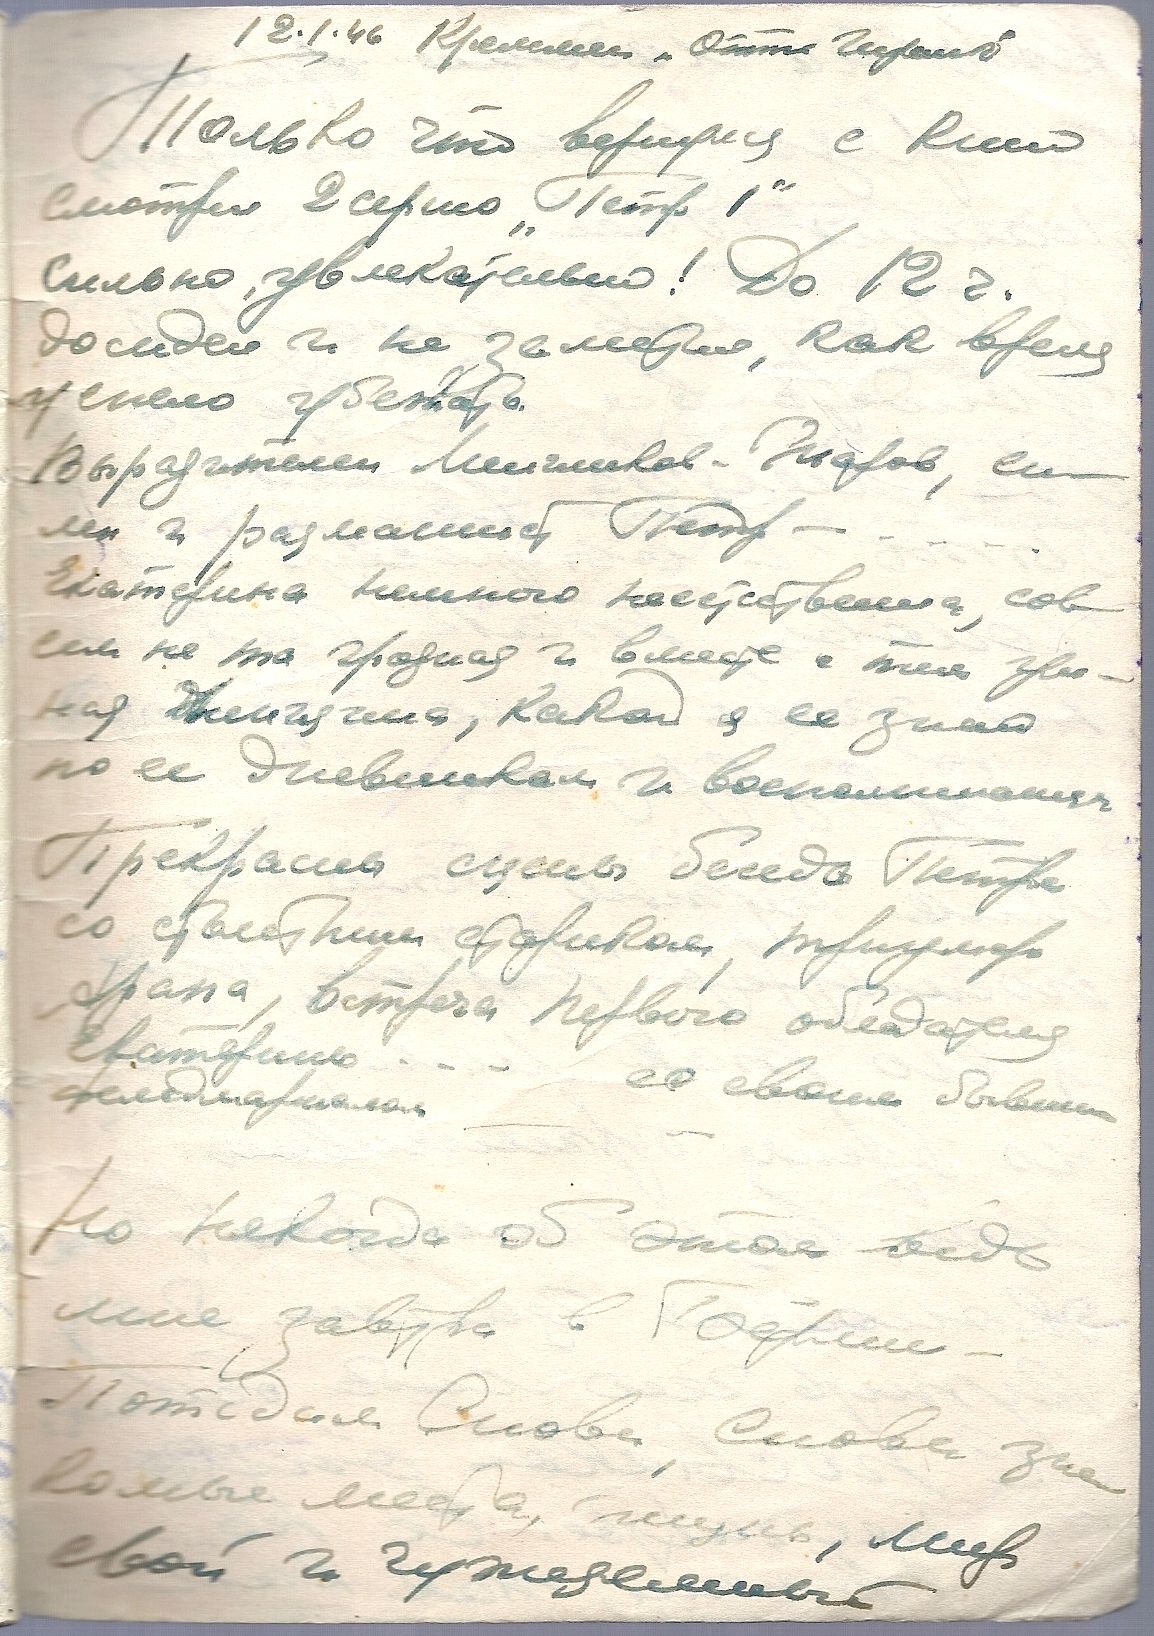 12.1.46 Креммен „Отто Гигант"
Только что вернулся с кино
смотрел 2 серию „Петр 1"
Сильно, увлекательно! До 12 ч.
досидел и не заметил, как время
успело убежать.
Выразителен Меншиков - Жаров, си-
лен и размашист Петр - . . . . .
Екатерина немного неестественна, сов
сем не та грозная и вместе с тем ум-
ная женщина, какой я ее знаю
по ее дневникам и воспоминаниям
Прекрасны сцены беседы Петра
со столетним стариком, триумф
храпа, встреча первого обладателя
Екатерины . . . со своим бывшим
фельдмаршалом
Но некогда об этом ведь
мне завтра в Берлин -
Потсдам Снова, снова зна
комые места, жизнь, мир
свой и чужеземный